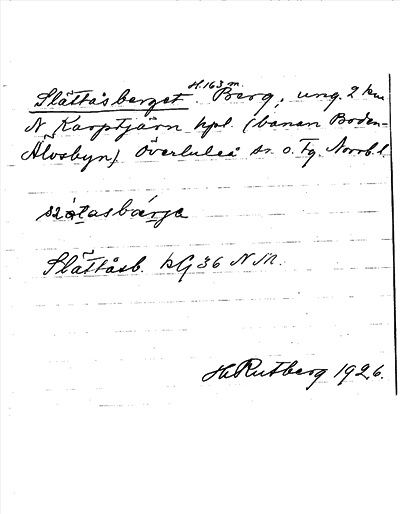 Slåttåsberget. H. 163 m. Berg, ung. 2 km
N Karptjärn hpl. (banan Boden-
Älvsbyn) Överluleå sn o. Tg. Norrb. l.
Slåttåsb. kG 36 NM.
H. Rutberg 1926.